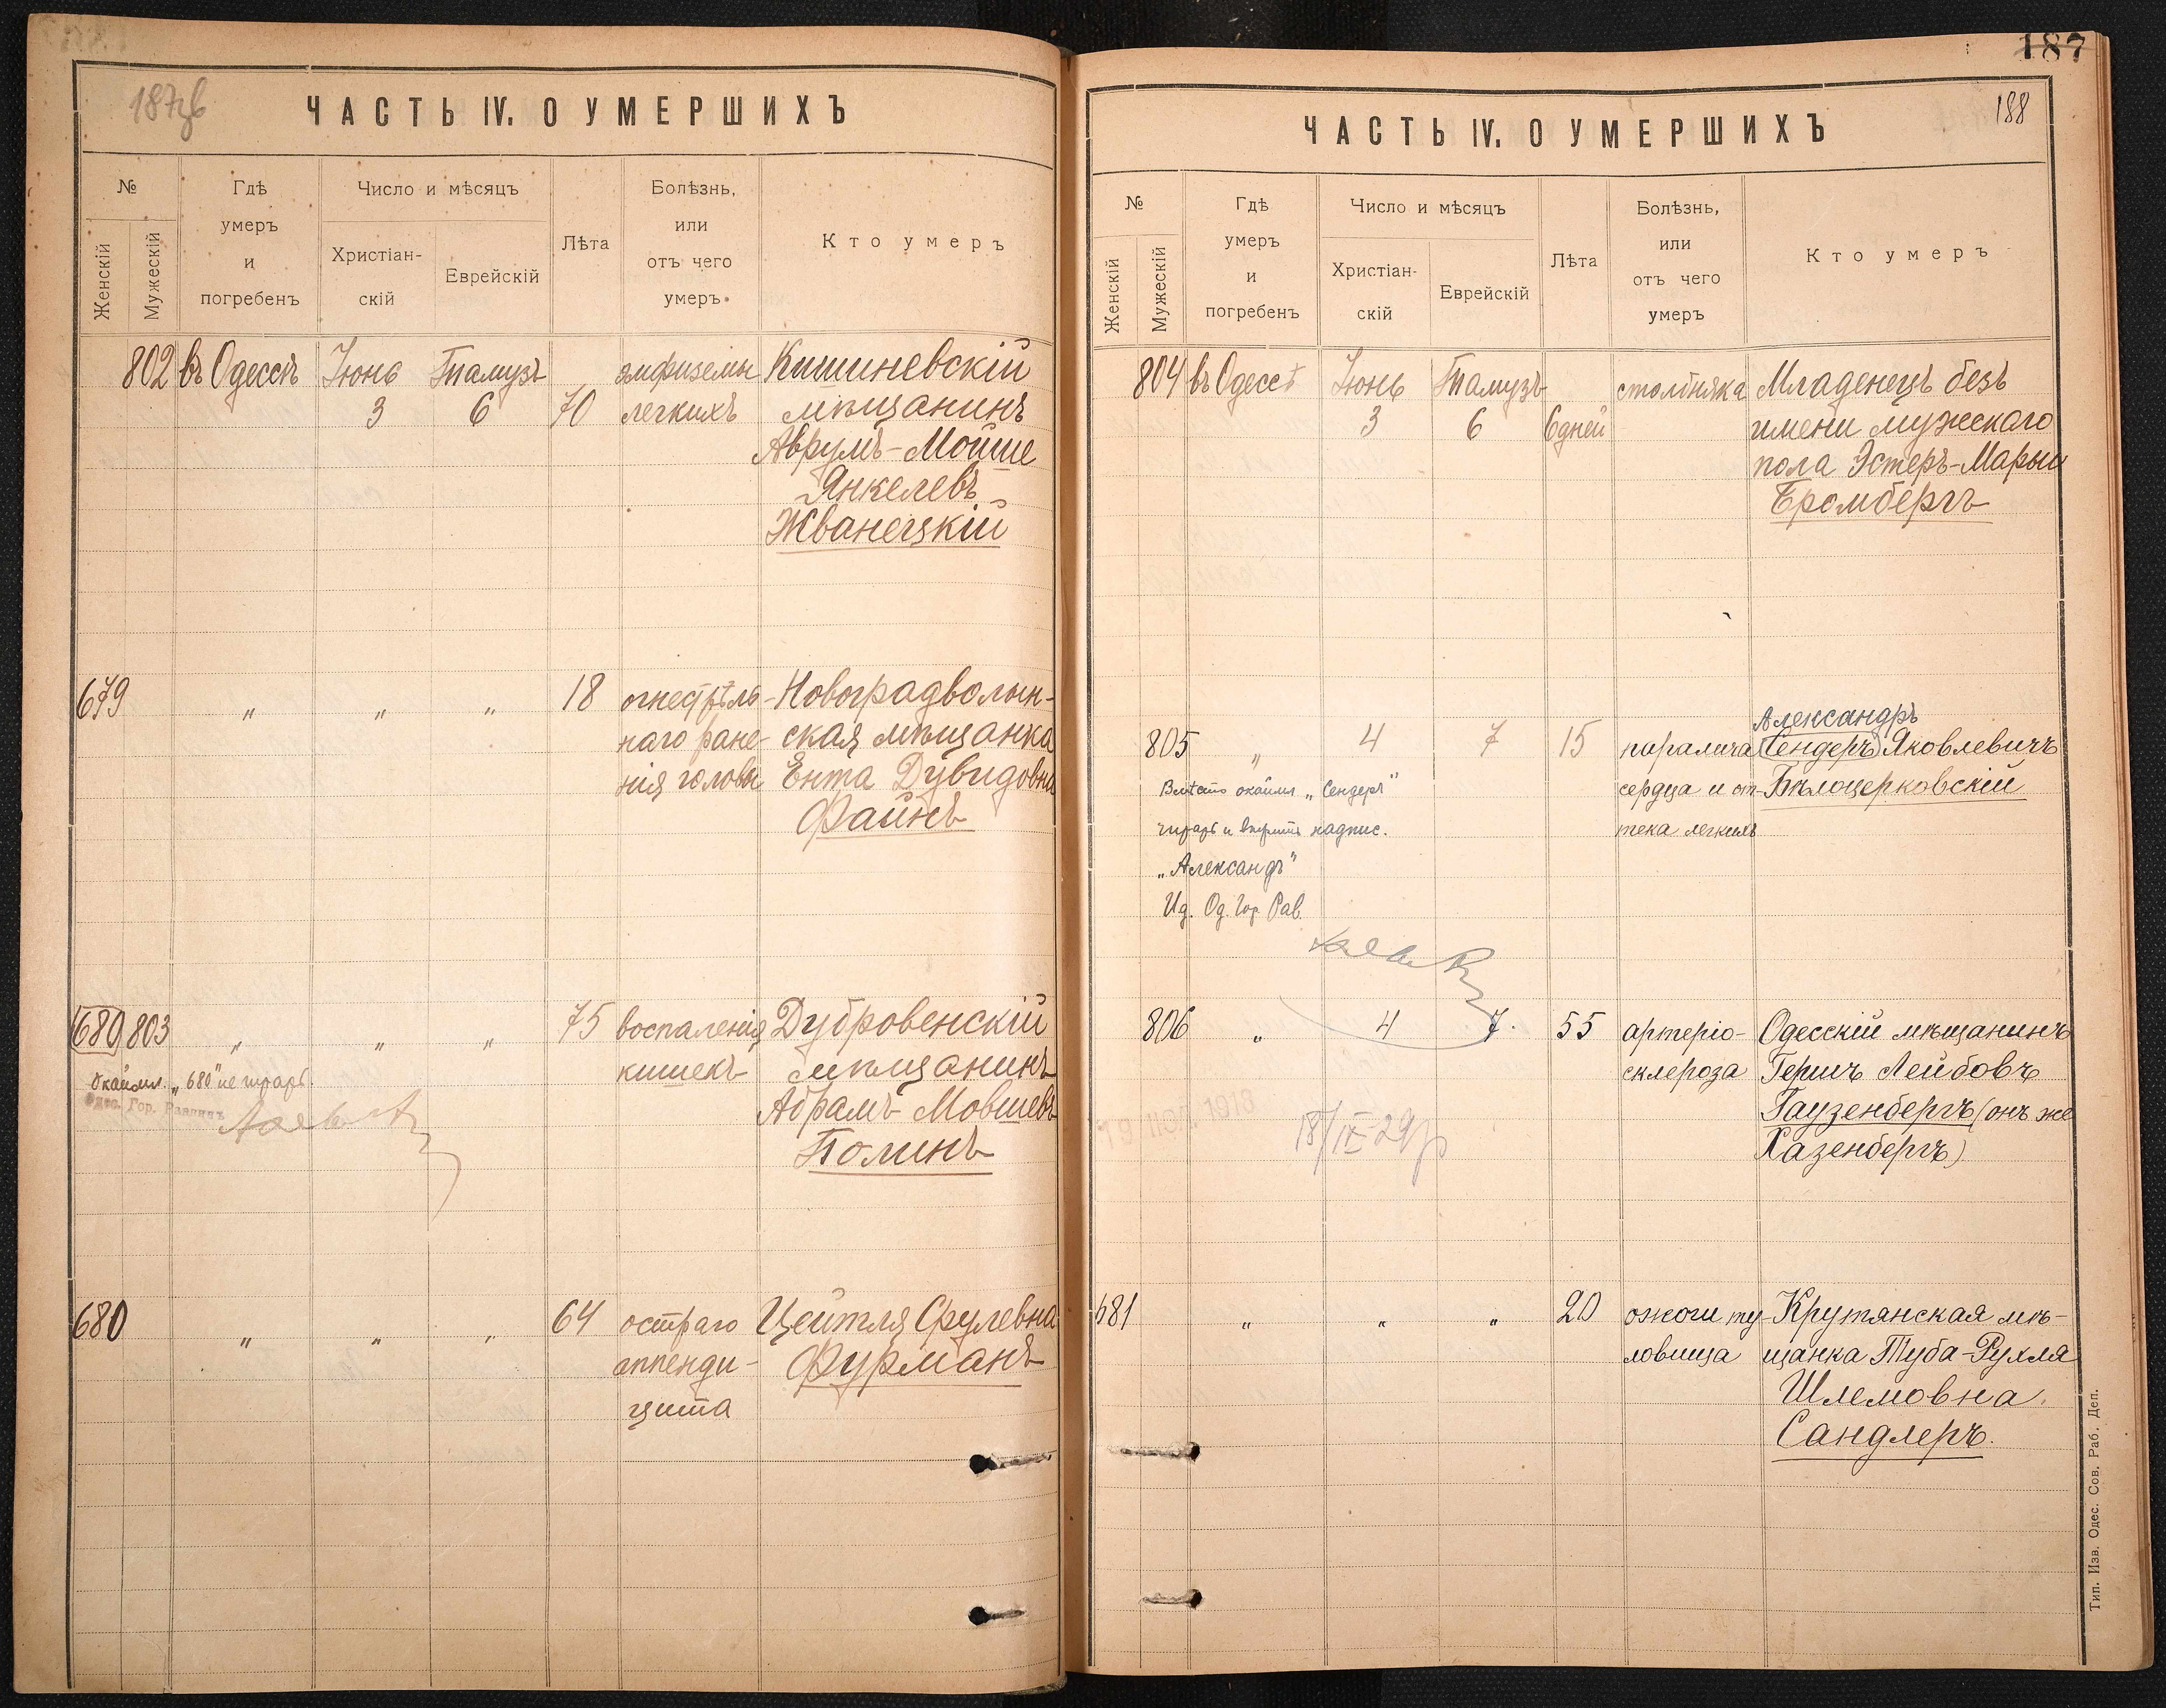 ЧАСТЬ IV. О УМЕРШИХЪ
№
Женскій
Мужескій
Гдѣ
умеръ
и
погребенъ
Число и мѣсяцъ
Христіан-
скій
Еврейскій
Лѣта
Болѣзнь,
или
отъ чего
умеръ.
Кто умеръ
802 въ Одессѣ Іюнь Тамузъ эмфиземы Кишиневскій
3 6 70 легкихъ мѣщанинъ
Аврумъ-Мойше
Янкелевъ
Жванецкій
679 " " " 18 огнестрѣль- Новоградволын-
наго ране- ская мѣщанка
нія головы Ента Дувидовна
Файнъ
680 803 " " " 75 воспаленія Дубровенскій
кишекъ мѣщанинъ
Абрамъ Мовшевъ
Полинъ
Окаймл. „680" не чітать.
Одес. Гор. Раввинъ
680 " " " 64 остраго Цейтля Срулевна
аппенди- Фурманъ
цита
187
188
ЧАСТЬ IV. О УМЕРШИХЪ
№
Женскій
Мужескій
Гдѣ
умеръ
и
погребенъ
Число и мѣсяцъ
Христіан-
скій
Еврейскій
Лѣта
Болѣзнь,
или
отъ чего
умеръ
Кто умеръ
804 въ Одессѣ Іюнь Тамузъ столбняка Младенецъ безъ
3 6 6 дней имени мужескаго
пола Эстеръ-Марьи
Бромбергъ
Александръ
805 " 4 7 15 паралича (Сендеръ) Яковлевичъ
сердца и от- Бѣлоцерковскій
тека легкихъ
Вмѣсто окаймл. „Сендеръ"
надпис.
„Александръ"
Ид. Од. Гор. Рав.
806 " 4 7. 55 артеріо- Одесскій мѣщанинъ
склероза Гершъ Лейбовъ
Гаузенбергъ (онъ же
Хазенбергъ)
18/IX-29
681 " " " 20 ожоги ту- Крутянская мѣ-
ловища щанка Туба-Рухля
Шлемовна
Сандлеръ.
Тип. Изв. Одес. Сов. Раб. Деп.